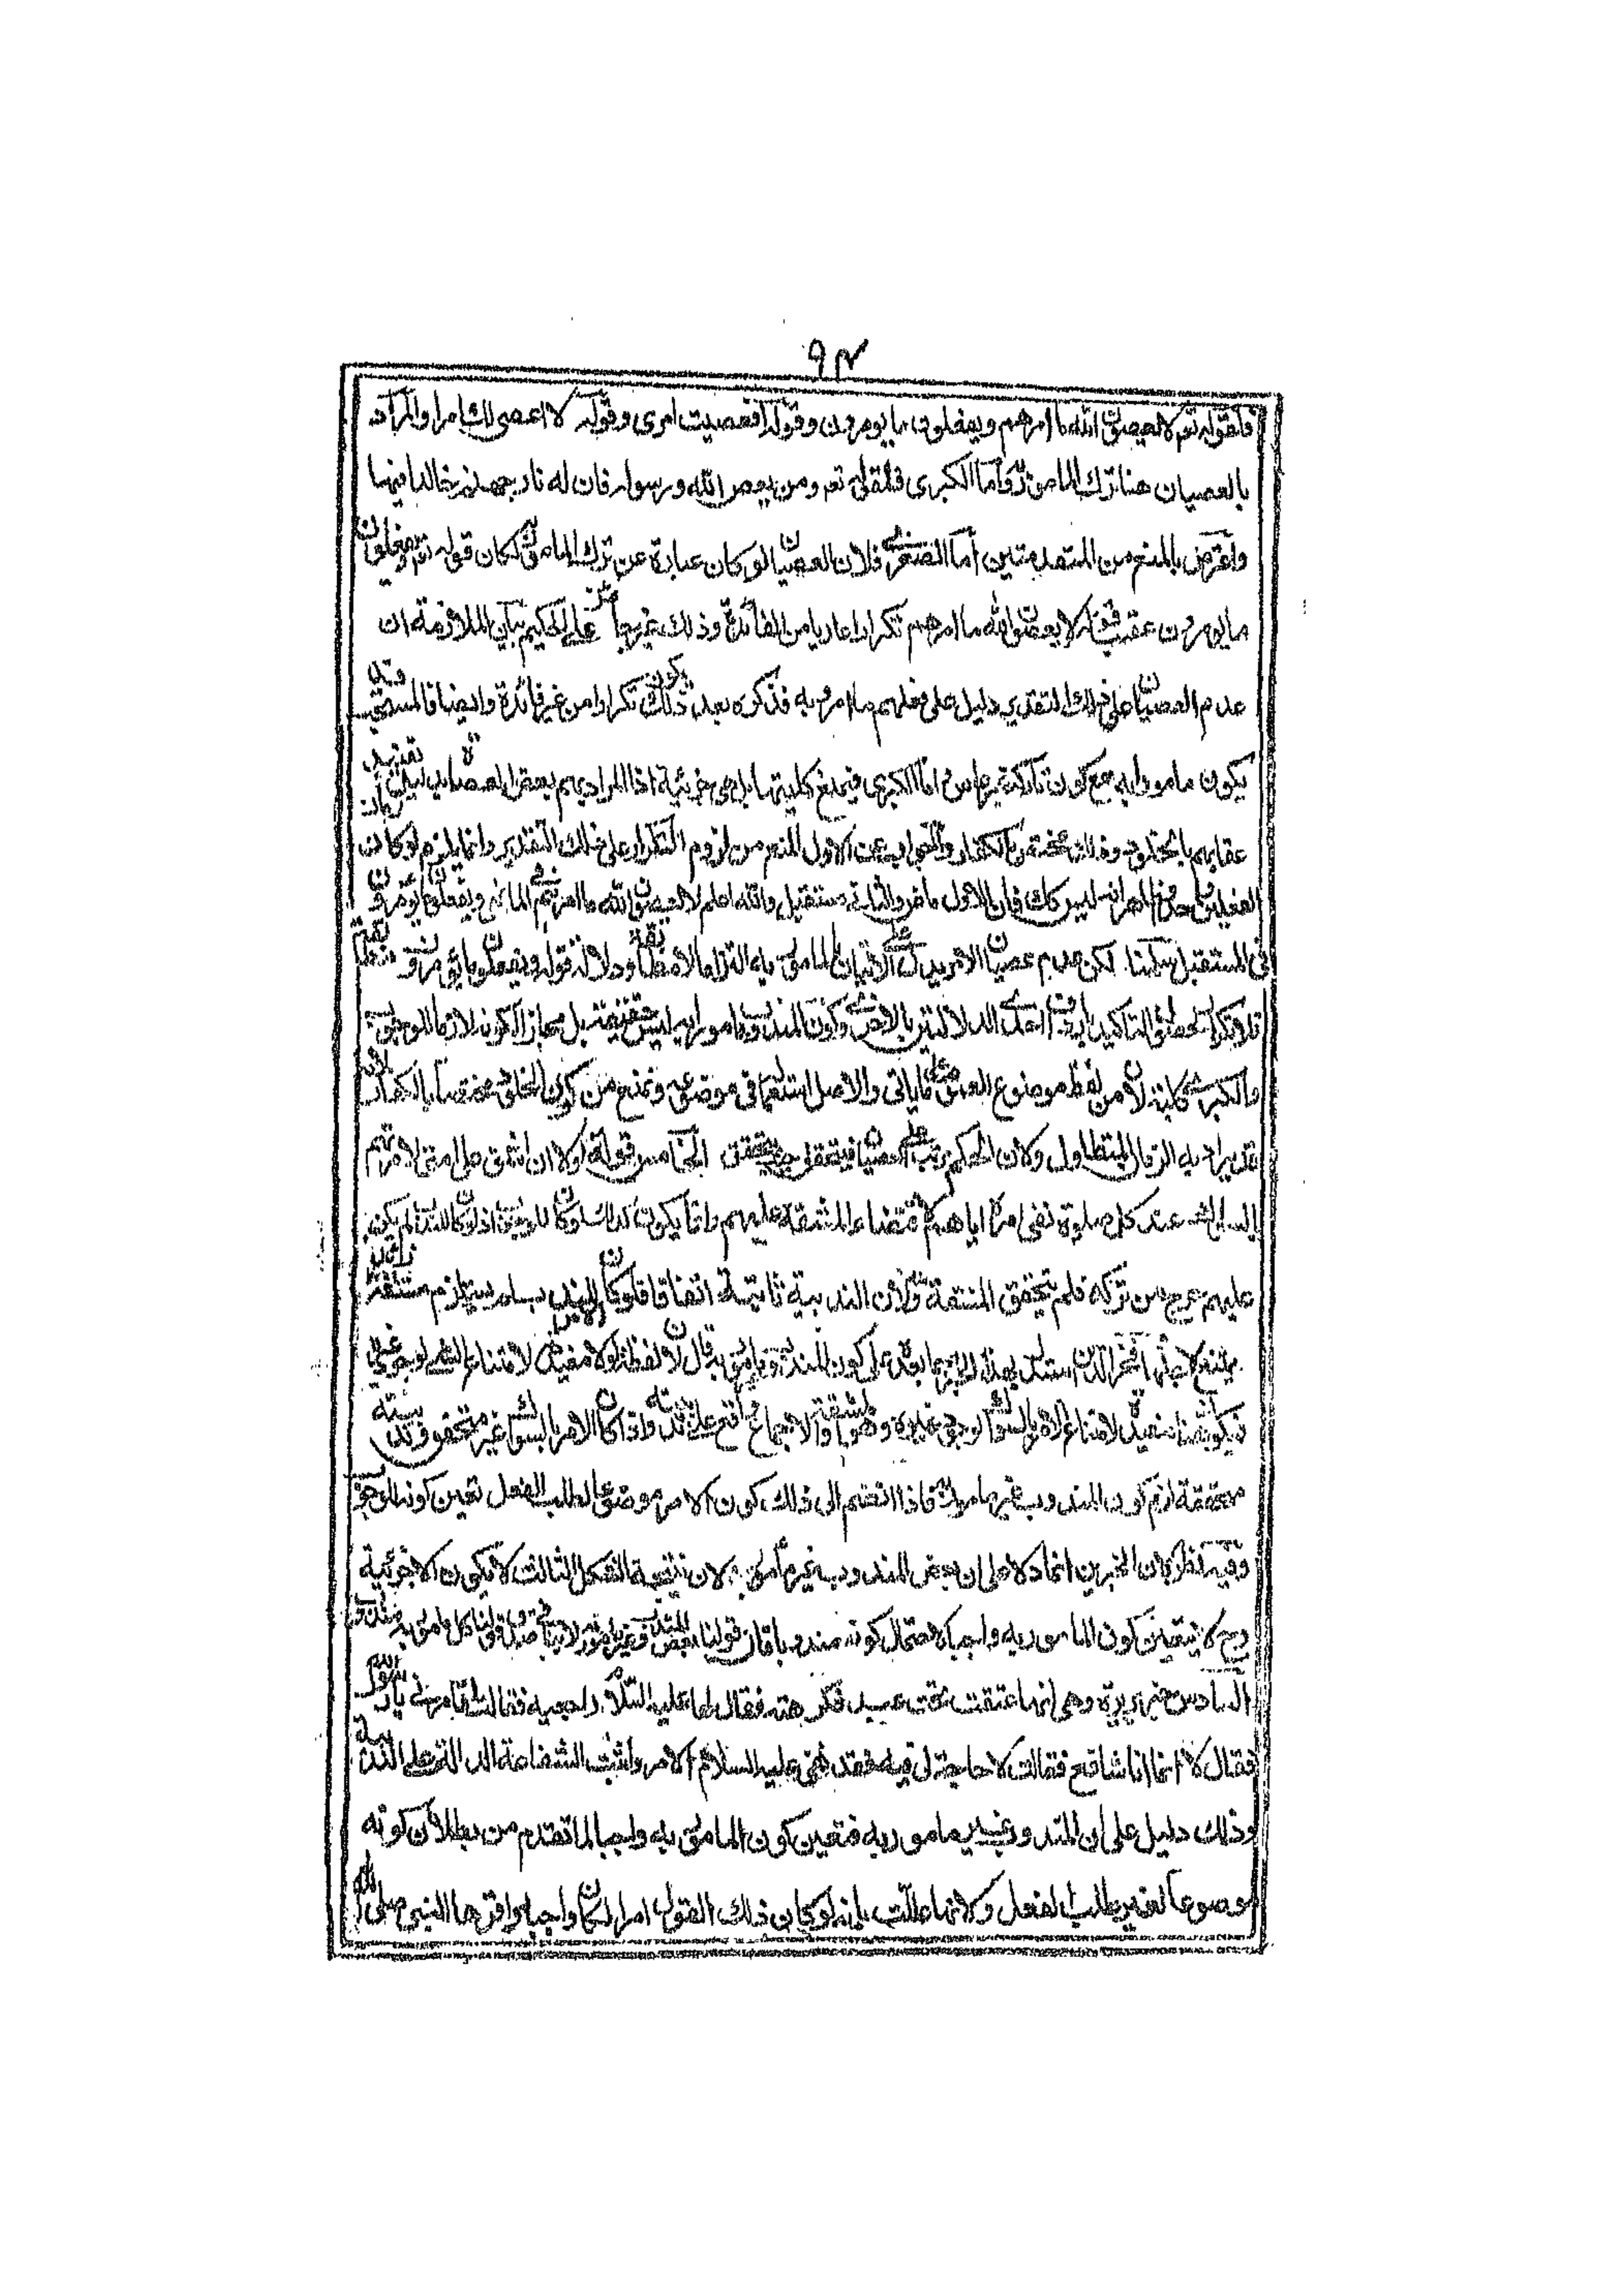 ٩٤
فلقوله تع لا يعصون الله ما امرهم ويفعلون ما يؤمرون وقوله افعصيت امرى وقوله لا اعصى لك امرا والمراد
بالعصيان هنا ترك المامور واما الكبرى فلقوله تع ومن يعص الله ورسوله فان له نار جهنم خالدا فيها
واعترض بالمنع من المتقدمتين اما الصغرى فلان العصيان لو كان عبارة عن ترك المامور لكان قوله تع ويفعلون
ما يؤمرون عقيب قوله لا يعصون الله ما امرهم تكرارا عاريا من الفائدة وذلك غير جائز على الحكيم بيان الملازمة ان
عدم العصيان على ذلك التقدير دليل على فعلهم ما امروا به فذكره بعد ذلك يكون تكرارا من غير فائدة وايضا فالمستحب قد
يكون مامورا به مع كون تاركه غير عاص واما الكبرى فيمنع كليتها بل هى جزئية اذ المراد بهم بعض العصاة بدليل تقييد
عقابهم بالخلود وذلك مختص بالكفار والجواب عن الاول المنع من لزوم التكرار على ذلك التقدير وانما يلزم لو كان زمان
الفعلين واحدا اما مع ليس كك فان الاول ماض والثانى مستقبل والله اعلم لا يعصون الله ما امرهم فى الماضى ويفعلون ما يؤمرون
فى المستقبل سلمنا لكن عدم عصيان الامر يدل على الاتيان بالمامور به التزاما لا مطابقة ودلالة قوله ويفعلون ما يؤمرون مطابقة
فلا تكرار لحصول التاكيد بارداف احدى الدلالتين بالاخرى وكون المندوب مامورا به ليس حقيقة بل مجازا لكونه لازما للوجوب
والكبرى كلية لان من لفظ موضوع للعموم على ما ياتى والاصل استعمالها فى موضوعه ونمنع من كون الخلود مختصا بالكفار لانه
قد يراد به الزمان المتطاول ولان الحكم رتب على العصيان فيتحقق حيث يتحقق الخامس قوله لولا ان اشق على امتى لامرتهم
بالسواك عند كل صلوة نفى امره اياهم لاقتضاء المشقة عليهم وانما يكون كذلك لو كان للوجوب اذ لو كان للندب لم يكن
عليهم حرج من تركه فلم تتحقق المشقة ولان الندبية ثابتة اتفاقا فلو كان المندوب مستلزم
فخر الدين استدل بهذا الخبر بما بعده على كون المندوب غير مامور به قال لان لفظة لولا مفيدة لامتناع الشئ لوجود غيره
فيكون هنا مفيدة لامتناع الامر بالسواك لوجود غيره وهو المشقة والاجماع واقع على ندبيته واذا كان الامر بالسواك غير متحقق وندبيته
متحققة لزم كون المندوب غير مامور به فاذا انضم الى ذلك كون الامر موضوعا لطلب الفعل تعين كونه للوجوب
وفيه نظر فان الخبرين انما دلا على ان بعض المندوب غير مامور به لان نتيجة الشكل الثالث لا تكون الا جزئية
وح لا يتعين كون المامور به واجبا لاحتمال كونه مندوبا فان قولنا بعض المندوب غير مامور به لا ينافى صدق قولنا كل مامور به مندوب
السادس خبر بريرة وهى انها عتقت تحت عبد فكرهته فقال لها عليه السلام راجعيه فقالت اتامرنى يا رسول الله
فقال لا انما انا شافع فقالت لا حاجة لى فيه فقد نفى عليه السلام الامر واثبت الشفاعة الدالة على الندبية
وذلك دليل على ان المندوب غير مامور به فتعين كون المامور به واجبا لما تقدم من بطلان كونه
موضوعا لغير طلب الفعل ولانها علمت بانه لو كان ذلك القول امرا لكان واجبا واقرها النبى صلى الله